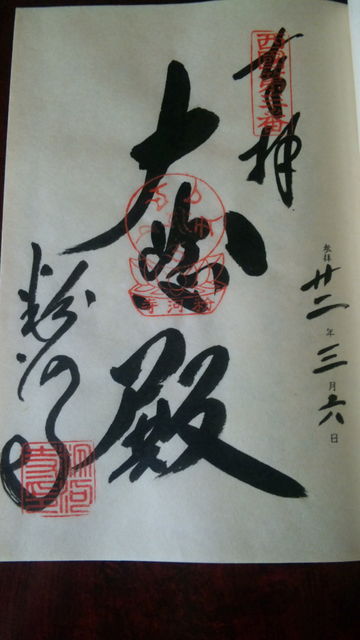 奉拝
西国第三番
参拝 廿二年三月六日
大悲殿
寺河粉
粉河寺